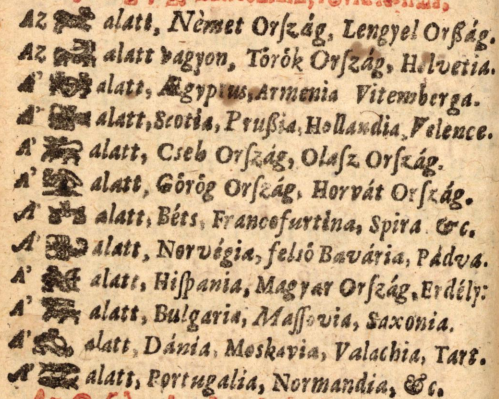 Az alatt, Nèmet Orſzág, Lengyel Orßág.
Az alatt vagyon, Török Orſzág, Helvetia.
A' alatt, Ægyptus, Armenia Vitemberga.
A' alatt, Scotia, Prußia, Hollandia, Velence.
A' alatt, Cseh Orſzág, Olasz Orſzág.
A' alatt, Görög Orſzág, Horvát Orſzág.
A' alatt, Béts, Francofurtina, Spira &c.
A' alatt, Norvégia, felsö Bavária, Pádva.
A' alatt, Hiſpania, Magyar Orſzág, Erdély:
A' alatt, Bulgaria, Maſſovia, Saxonia.
A' alatt, Dánia, Moskavia, Valachia, Tart.
A' alatt, Portugalia, Normandia, &c.